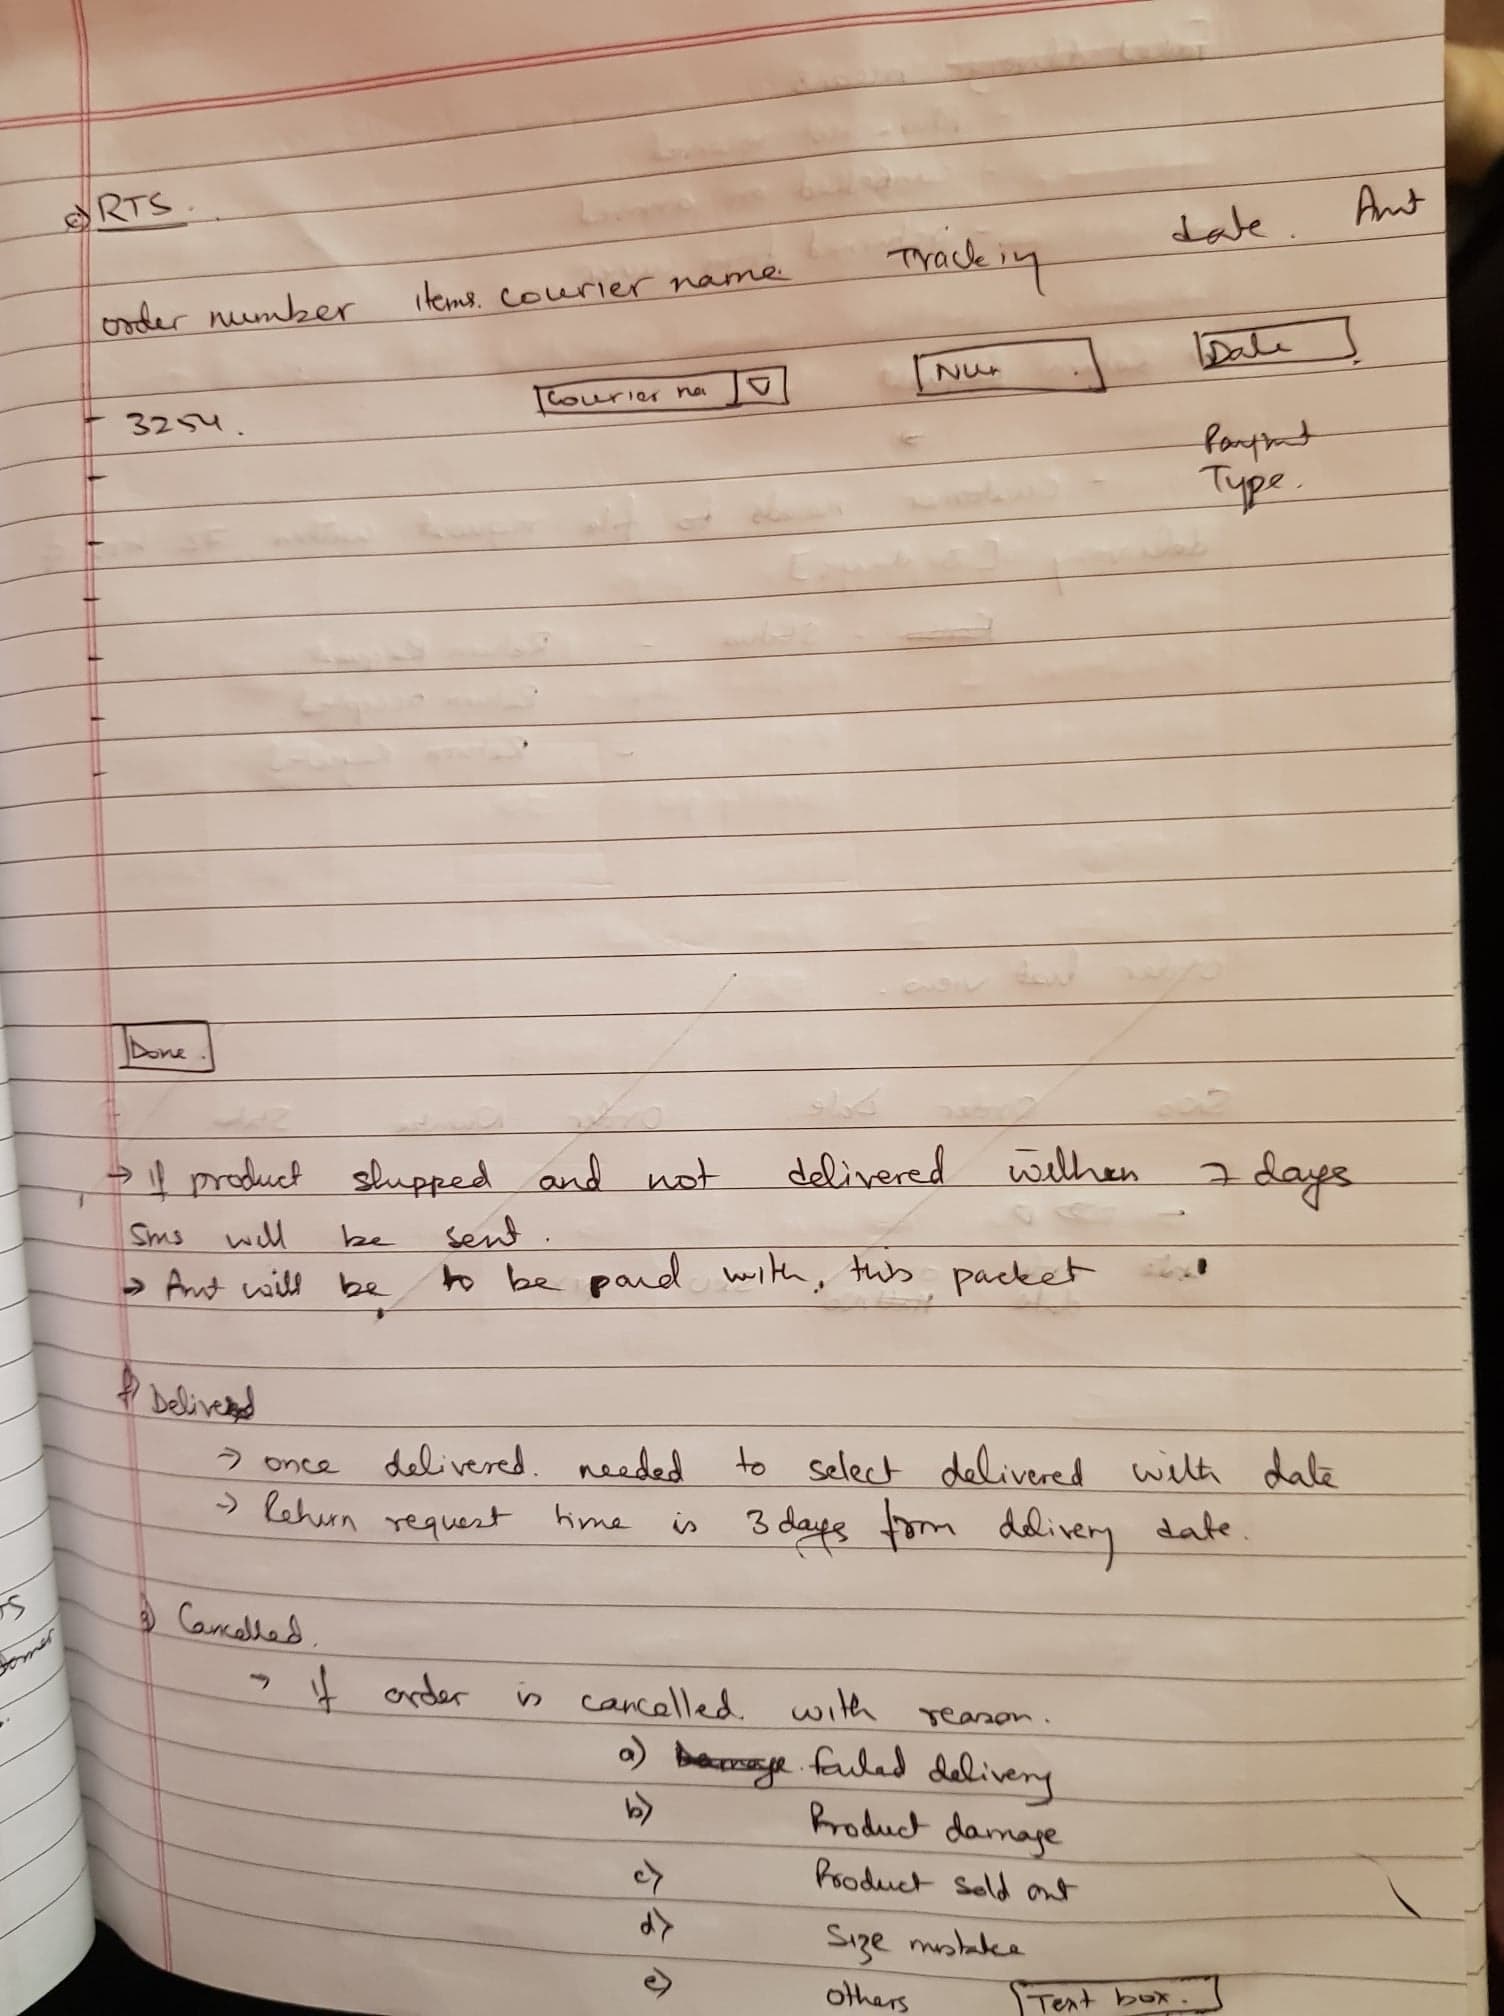 e) RTS.
order number items. courier name Tracking date. Amt
3254. Courier na Num Date
Paymt
Type.
Done.
→ If product shipped and not delivered within 7 days
Sms will be sent.
→ Amt will be to be paid with, this packet
f) Delivered
→ once delivered. needed to select delivered with date
→ Return request time is 3 days from delivery date.
g) Cancelled.
→ if order is cancelled. with reason.
a) failed delivery
b) Product damage
c) Product sold out
d) Size mistake
e) others Text box.